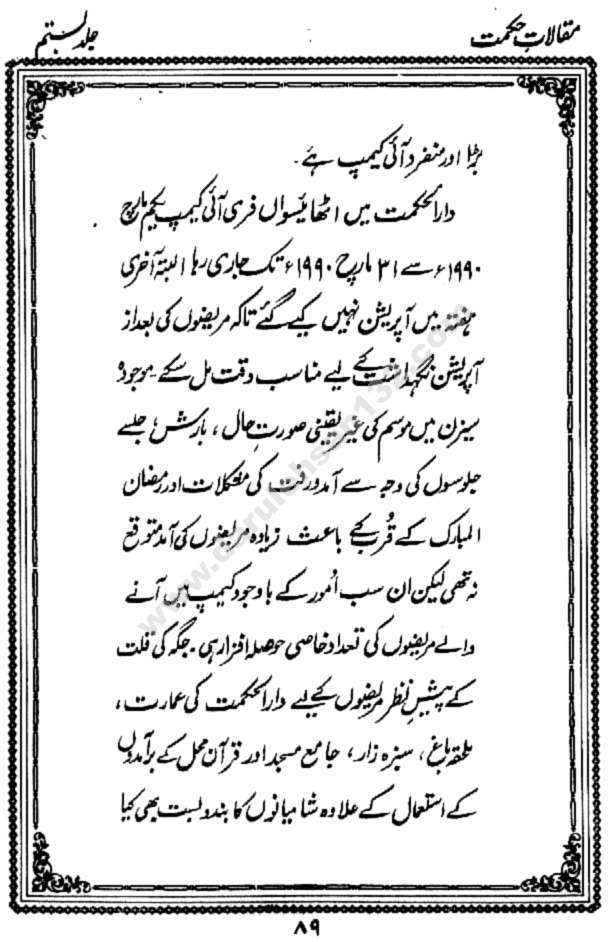 مقالاتِ حکمت
جلد بستم
بڑا اور منفرد آئی کیمپ ہے۔
دارالحکمت میں اٹھائیسواں فری آئی کیمپ یکم مارچ
۱۹۹۰ء سے ۳۱ مارچ ۱۹۹۰ء تک جاری رہا البتہ آخری
ہفتہ میں آپریشن نہیں کیے گئے تاکہ مریضوں کی بعد از
آپریشن نگہداشت کے لیے مناسب وقت مل سکے۔ موجودہ
سیزن میں موسم کی غیر یقینی صورتِ حال ، بارش ، جلسے
جلوسوں کی وجہ سے آمدورفت کی مشکلات اور رمضان
المبارک کے قُرب کے باعث زیادہ مریضوں کی آمد متوقع
نہ تھی لیکن ان سب اُمور کے باوجود کیمپ میں آنے
والے مریضوں کی تعداد خاصی حوصلہ افزا رہی۔ جگہ کی قلت
کے پیشِ نظر مریضوں کے لیے دارالحکمت کی عمارت ،
ملحقہ باغ ، سبزہ زار ، جامع مسجد اور قرآن محل کے برآمدوں
کے استعمال کے علاوہ شامیانوں کا بندوبست بھی کیا
۸۹